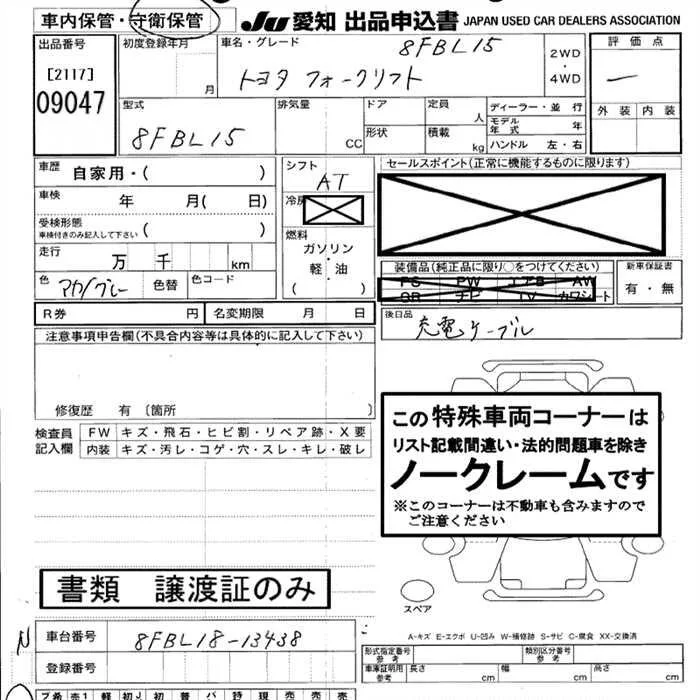 車内保管・守衛保管 JU 愛知 出品申込書 JAPAN USED CAR DEALERS ASSOCIATION
出品番号 初度登録年月 月 車名・グレード 8FBL15 2WD ・ 4WD 評価点
[2117] トヨタ フォークリフト ー
09047 型式 排気量 CC ドア 定員 人 ディーラー・並行 外装 内装
8FBL15 形状 積載 kg モデル年式 年
ハンドル 左・右
車歴 自家用・( ) シフト AT セールスポイント(正常に機能するものに限ります)
車検 年 月( 日) 冷房
受検形態 ( )
車検付きのみ記入して下さい
燃料
ガソリン・
軽・油
( )
走行 万 千 km 装備品(純正品に限り○をつけてください) 新車保証書
色 アカ/グレー 色替 色コード PS PW エアB AW 有・無
SR ナビ TV カワシート
R券 円 名変期限 月 日 後日品 充電ケーブル
注意事項申告欄(不具合内容等は具体的に記入して下さい)
修復歴 有 〔箇所 〕
この特殊車両コーナーは
リスト記載間違い・法的問題車を除き
ノークレームです
※このコーナーは不動車も含みますので
ご注意ください
検査員 FW キズ・飛石・ヒビ割・リペア跡・X要
記入欄 内装 キズ・汚レ・コゲ・穴・スレ・キレ・破レ
書類 譲渡証のみ
スペア
A-キズ E-エクボ U-凹み W-補修跡 S-サビ C-腐食 XX-交換済
N 車台番号 8FBL18-13438
登録番号
形式指定番号 参考 類別区分番号 参考
車庫証明用 参考 長さ cm 幅 cm 高さ cm